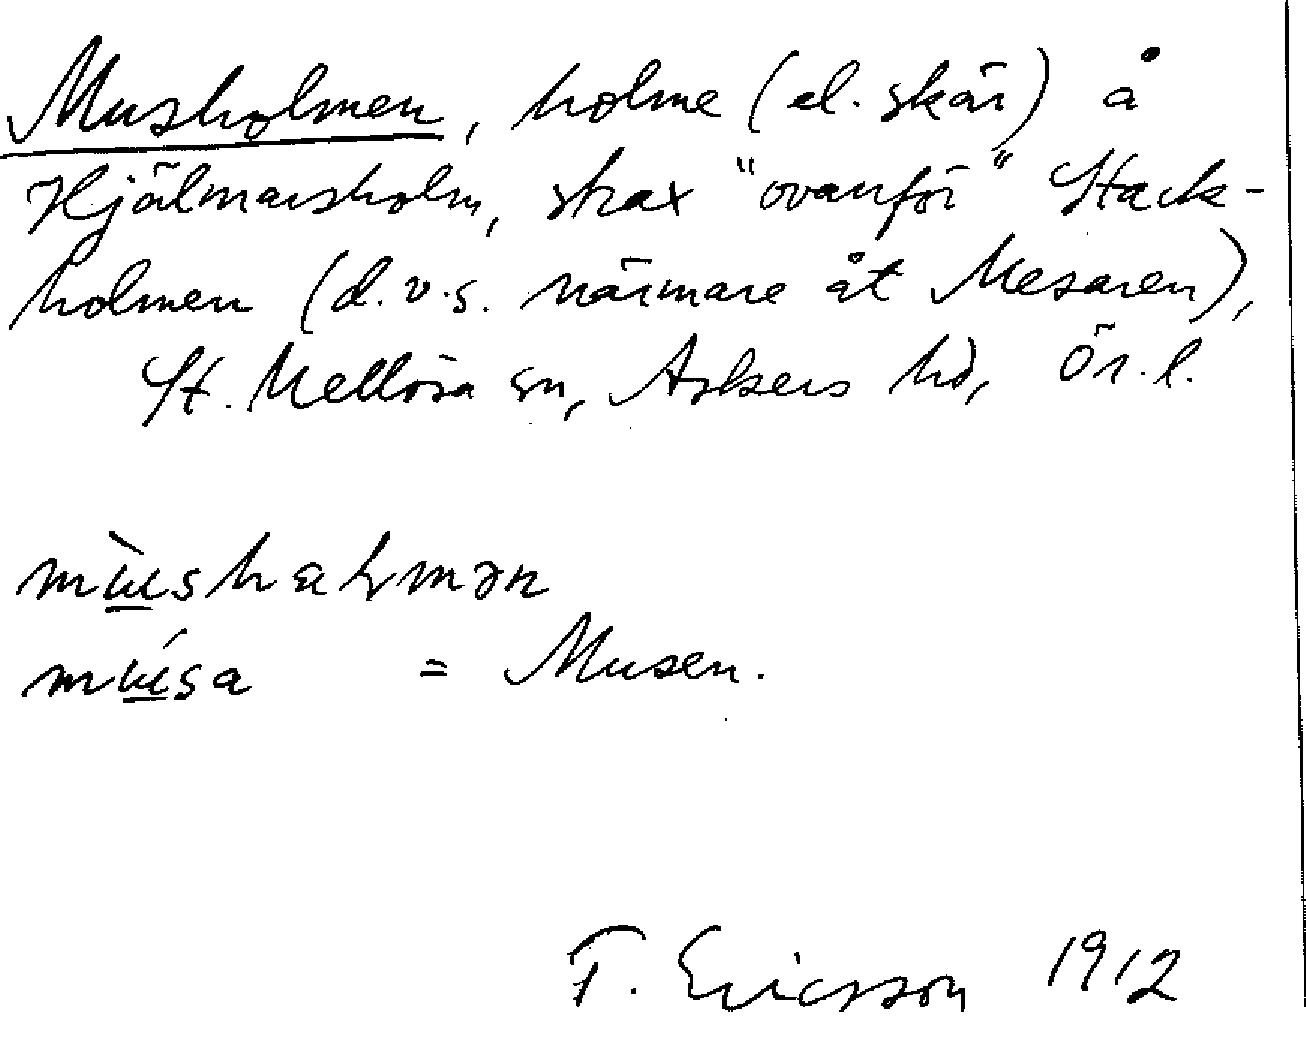 Musholmen, holme (el. skär) å
Hjälmarsholm, strax "ovanför" Stack-
holmen (d.v.s. närmare åt Mesaren),
St. Mellösa sn, Askers hd, Ör. l.
mùshaḷmən
músa = Musen.
F. Ericsson 1912